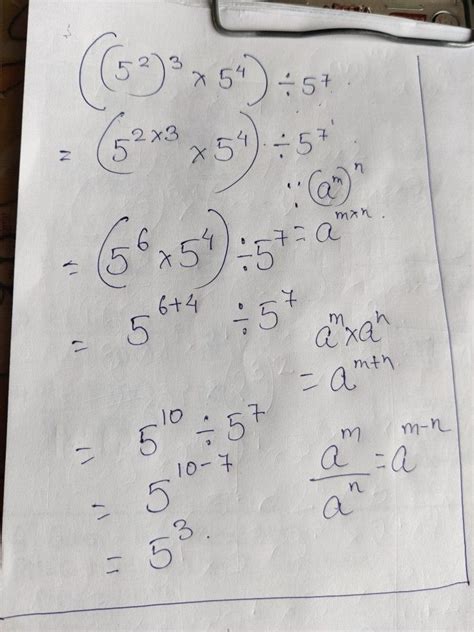 ((5²)³ × 5⁴) ÷ 5⁷
= (5²ˣ³ × 5⁴) ÷ 5⁷
∵ (aᵐ)ⁿ
= aᵐˣⁿ.
= (5⁶ × 5⁴) ÷ 5⁷
= 5⁶⁺⁴ ÷ 5⁷
aᵐ × aⁿ
= aᵐ⁺ⁿ
= 5¹⁰ ÷ 5⁷
= 5¹⁰⁻⁷
aᵐ/aⁿ = aᵐ⁻ⁿ
= 5³.